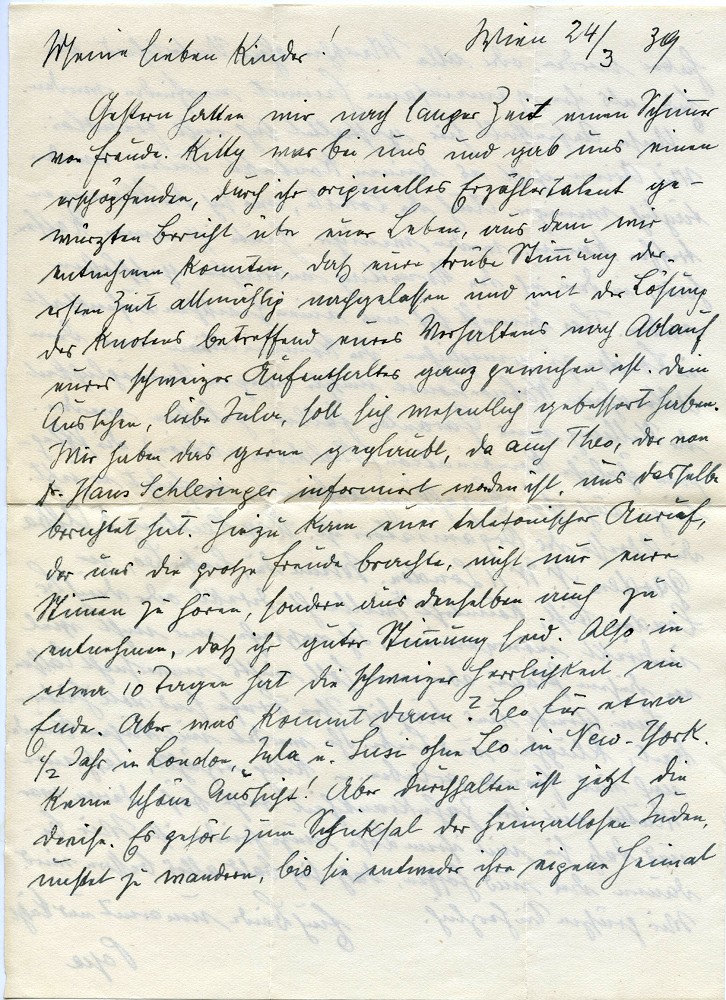 Wien 24/3 39
Meine lieben Kinder!
Gestern hatten wir nach langer Zeit einen Schimmer
von Freude. Kitty war bei uns und gab uns einen
erschöpfenden, durch ihr originelles Erzählertalent ge-
würzten Bericht über euer Leben, aus dem wir
entnehmen konnten, daß eure trübe Stimmung der
ersten Zeit allmählig nachgelassen und mit der Lösung
des Knotens betreffend eures Verhaltens nach Ablauf
eures schweizer Aufenthaltes ganz gewichen ist. Dein
Aussehen, liebe Jula, soll sich wesentlich gebessert haben.
Wir haben das gerne geglaubt, da auch Theo, der von
Dr. Hans Schlesinger informiert worden ist, uns dasselbe
berichtet hat. Hiezu kam euer telefonischer Anruf,
der uns die große Freude brachte, nicht nur eure
Stimmen zu hören, sondern aus denselben auch zu
entnehmen, daß ihr guter Stimmung seid. Also in
etwa 10 Tagen hat die schweizer Herrlichkeit ein
Ende. Aber was kommt dann? Leo für etwa
1/2 Jahr in London, Jula u. Susi ohne Leo in New-York.
Keine schöne Aussicht! Aber durchhalten ist jetzt die
Devise. Es gehört zum Schicksal der heimatlosen Juden,
unstet zu wandern, bis sie entweder ihre eigene Heimat